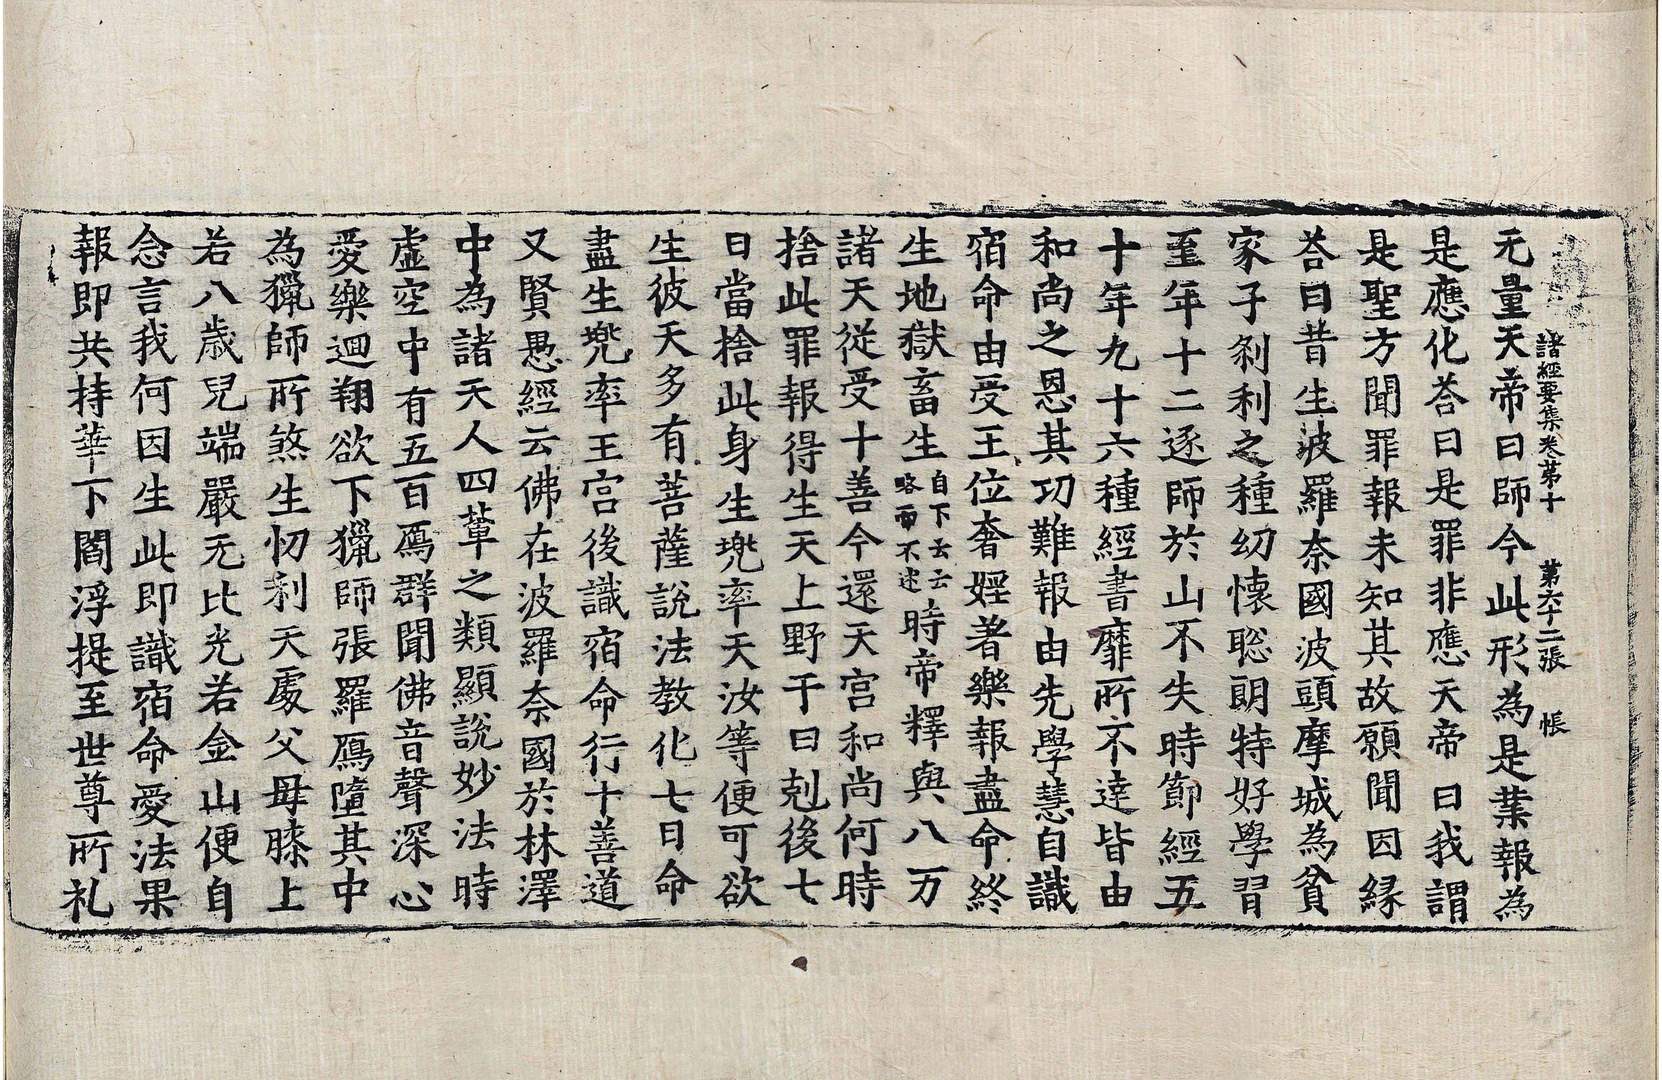 諸經要集卷第十　第六十二張　帳
无量天帝曰師今此形為是業報為
是應化荅曰是罪非應天帝曰我謂
是聖方聞罪報未知其故願聞因緣
荅曰昔生波羅奈國波頭摩城為貧
家子刹利之種幼懷聡朗特好學習
至年十二逐師於山不失時節經五
十年九十六種經書靡所不達皆由
和尚之恩其功難報由先學慧自識
宿命由受王位奢婬著樂報盡命終
生地獄畜生自下云云略而不述時帝釋與八万
諸天從受十善今還天宮和尚何時
捨此罪報得生天上野干曰剋後七
日當捨此身生兠率天汝等便可欲
生彼天多有菩薩說法教化七日命
盡生兠率王宮後識宿命行十善道
又賢愚經云佛在波羅奈國於林澤
中為諸天人四輩之類顯說妙法時
虛空中有五百鴈群聞佛音聲深心
愛樂迴翔欲下獵師張羅鴈墮其中
為獵師所煞生忉利天處父母膝上
若八歲兒端嚴无比光若金山便自
念言我何因生此即識宿命愛法果
報即共持華下閻浮提至世尊所礼